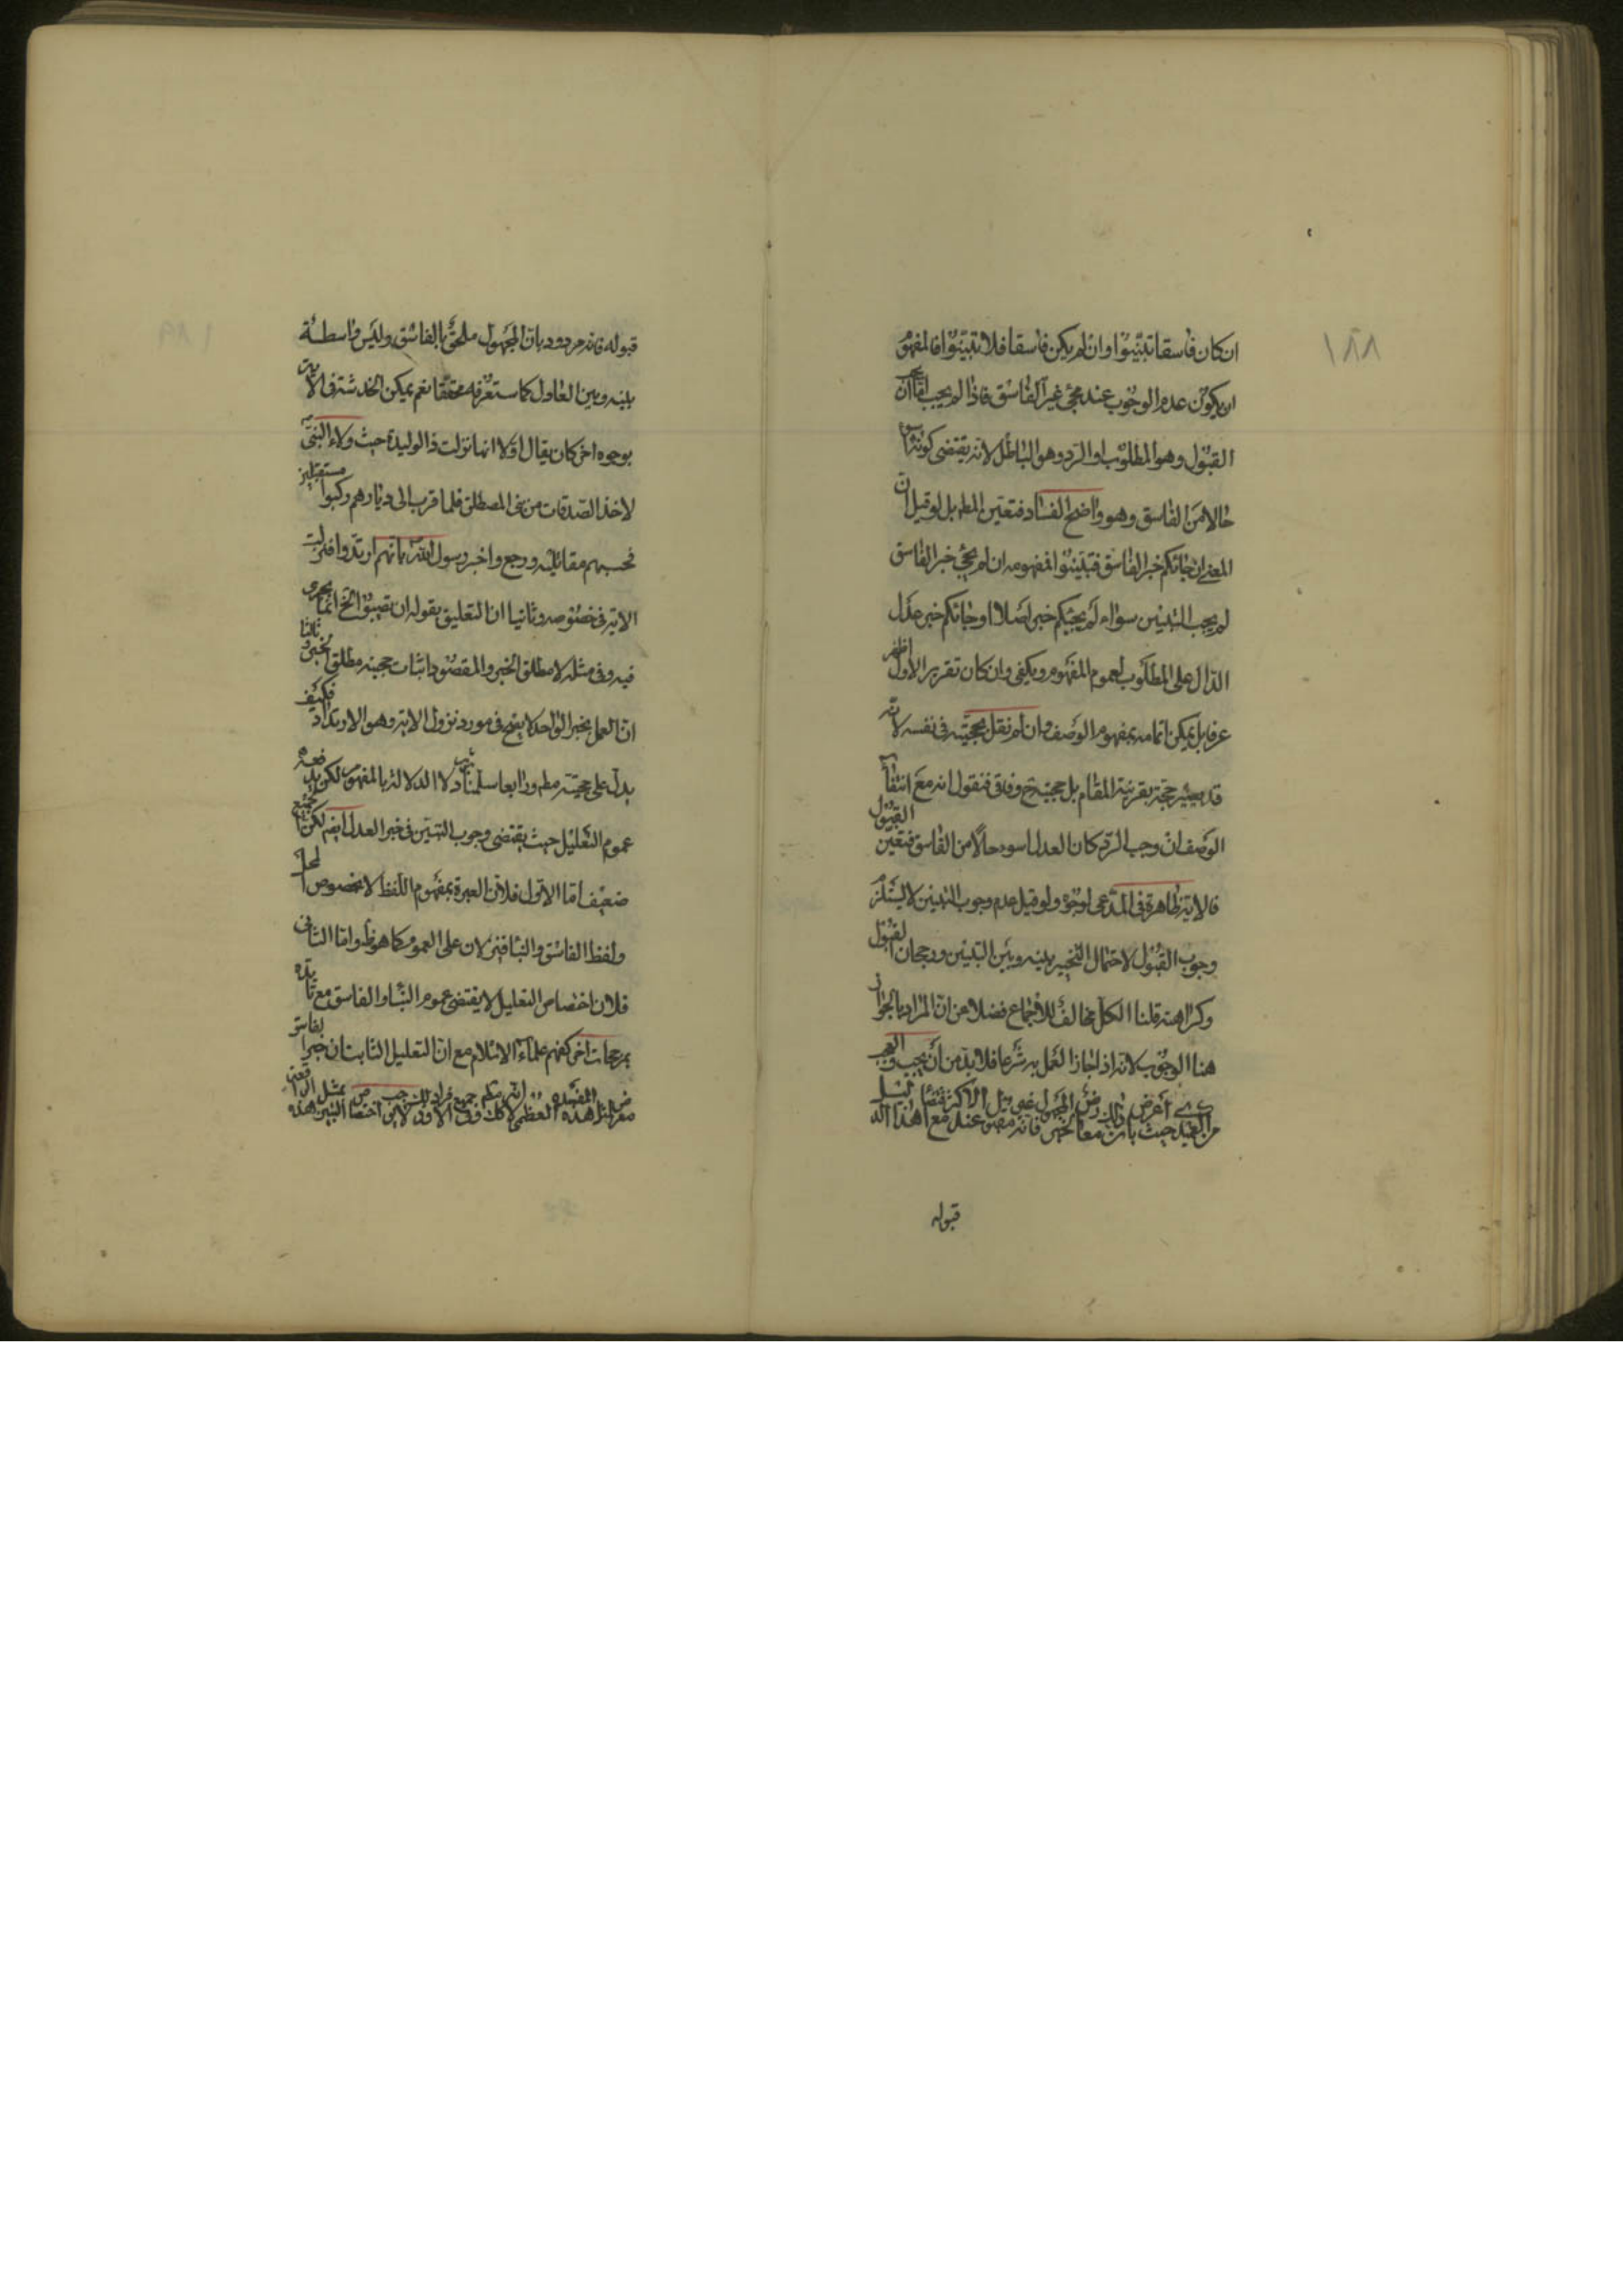 ١٨٨
ان كان فاسقا تبيّنوا وان لم يكن فاسقا فلا تبيّنوا فالمفهوم
ان يكون عدم الوجوب عند مجئ غير الفاسق فاذا لم يجب امّا ان يجب
القبول وهو المطلوب او الرد وهو الباطل لانه يقتضى كونه اسوء
حالا من الفاسق وهو واضح الفساد فتعين المط بل لو قيل ان
المعنى ان جائكم خبر الفاسق فتبيّنوا فمفهومه ان لم يجئ خبر الفاسق
لم يجب التبين سواء لم يجئكم خبر اصلا او جائكم خبر عدل
الدّال على المطلوب لعموم المفهوم ويكفى وان كان تقرير الاول اظهر
عرفا بل يمكن اتمامه بمفهوم الوصف وان لم نقل بحجيّته فى نفسه لانه
قد يصير حجة بقرينة المقام بل حجيته ح وفاقى فنقول انه مع انتفاء
الوصف ان وجب الرّد كان العدل اسوء حالا من الفاسق فتعيّن القبول
فالاية ظاهرة فى المدّعى لوجوه ولو قيل عدم وجوب التبين لا يستلزم
وجوب القبول لاحتمال التخيير بينه وبين التبين ورجحان القبول
وكراهته قلنا الكل مخالف للاجماع فضلا عن انّ المراد بالجواز
هنا الوجوب لانه اذا جاز العمل به شرعا فلا بدّ من ان يجب
قبوله
قبوله فانه مردود بانّ المجهول ملحق بالفاسق وليس واسطة
بينه وبين العادل كما ستعرفه محققا نعم يمكن الخدشة فى الاية
بوجوه اخر كان يقال اولا انها نزلت فى الوليد حيث ولاه النبىّ
لاخذ الصّدقات من بنى المصطلق فلما قرب الى ديارهم ركبوا مستقبلين
فحسبهم مقاتليه ورجع واخبر رسول اللّه بانهم ارتدوا فنزلت
الاية فى خصوصه وثانيا ان التعليق بقوله ان تصيبوا الخ انما يجرى
فيه وفى مثله لا مطلق الخبر والمقصود اثبات حجية مطلق الخبر وثالثا
انّ العمل بخبر الواحد لا يصح فى مورد نزول الاية وهو الارتداد فكيف
يدلّ على حجيّته مط ورابعا سلمنا دلالة الدلالة بالمفهوم لكن يدفعه
عموم التعليل حيث يقتضى وجوب التبيّن فى خبر العدل ايضا لكن الجميع
ضعيف امّا الاوّل فلانّ العبرة بمفهوم اللّفظ لا بخصوص المحل
ولفظ الفاسق والنبأ فيه لان على العموم كما هو ظ وامّا الثانى
فلان اختصاص التعليل لا يقتضى عموم النبأ والفاسق مع تأيده
بمرجحات اخر كفهم علماء الاسلام مع انّ التعليل الثابت ان خبر الفاسق